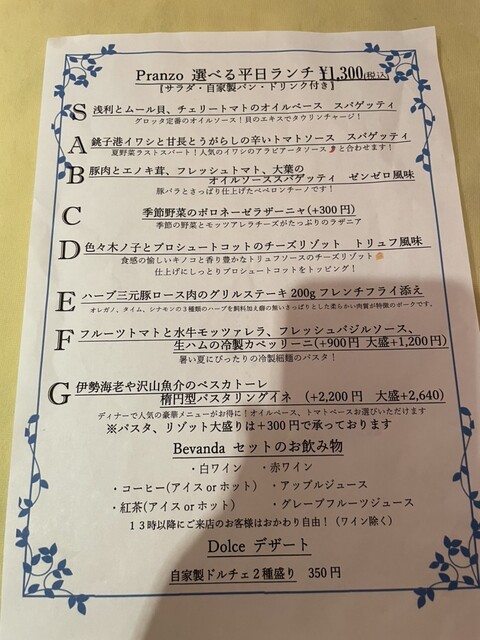 Pranzo 選べる平日ランチ ¥1,300(税込)
【サラダ・自家製パン・ドリンク付き】
S 浅利とムール貝、チェリートマトのオイルベース スパゲッティ
グロッタ定番のオイルソース！貝のエキスでタウリンチャージ！
A 銚子港イワシと甘長とうがらしの辛いトマトソース スパゲッティ
夏野菜ラストスパート！人気のイワシのアラビアータソース🌶と合わせます！
B 豚肉とエノキ茸、フレッシュトマト、大葉の
オイルソーススパゲッティ ゼンゼロ風味
豚バラとさっぱり仕上げたペペロンチーノです！
C 季節野菜のボロネーゼラザーニャ(+300円)
季節の野菜とモッツアレラチーズがたっぷりのラザニア
D 色々木ノ子とプロシュートコットのチーズリゾット トリュフ風味
食感の愉しいキノコと香り豊かなトリュフソースのチーズリゾット🧀
仕上げにしっとりプロシュートコットをトッピング！
E ハーブ三元豚ロース肉のグリルステーキ 200g フレンチフライ添え
オレガノ、タイム、シナモンの３種類のハーブを飼料加え癖の無いさっぱりとした柔らかい肉質が特徴のポークです。
F フルーツトマトと水牛モッツァレラ、フレッシュバジルソース、
生ハムの冷製カペッリーニ(+900円 大盛+1,200円)
暑い夏にぴったりの冷製細麺のパスタ！
G 伊勢海老や沢山魚介のペスカトーレ
楕円型パスタリングイネ (+2,200円 大盛+2,640)
ディナーで人気の豪華メニューがお得に！オイルベース、トマトベースお選びいただけます
※パスタ、リゾット大盛りは＋300円で承っております
Bevanda セットのお飲み物
・白ワイン ・赤ワイン
・コーヒー(アイス or ホット) ・アップルジュース
・紅茶(アイス or ホット) ・グレープフルーツジュース
１３時以降にご来店のお客様はおかわり自由！（ワイン除く）
Dolce デザート
自家製ドルチェ２種盛り 350円